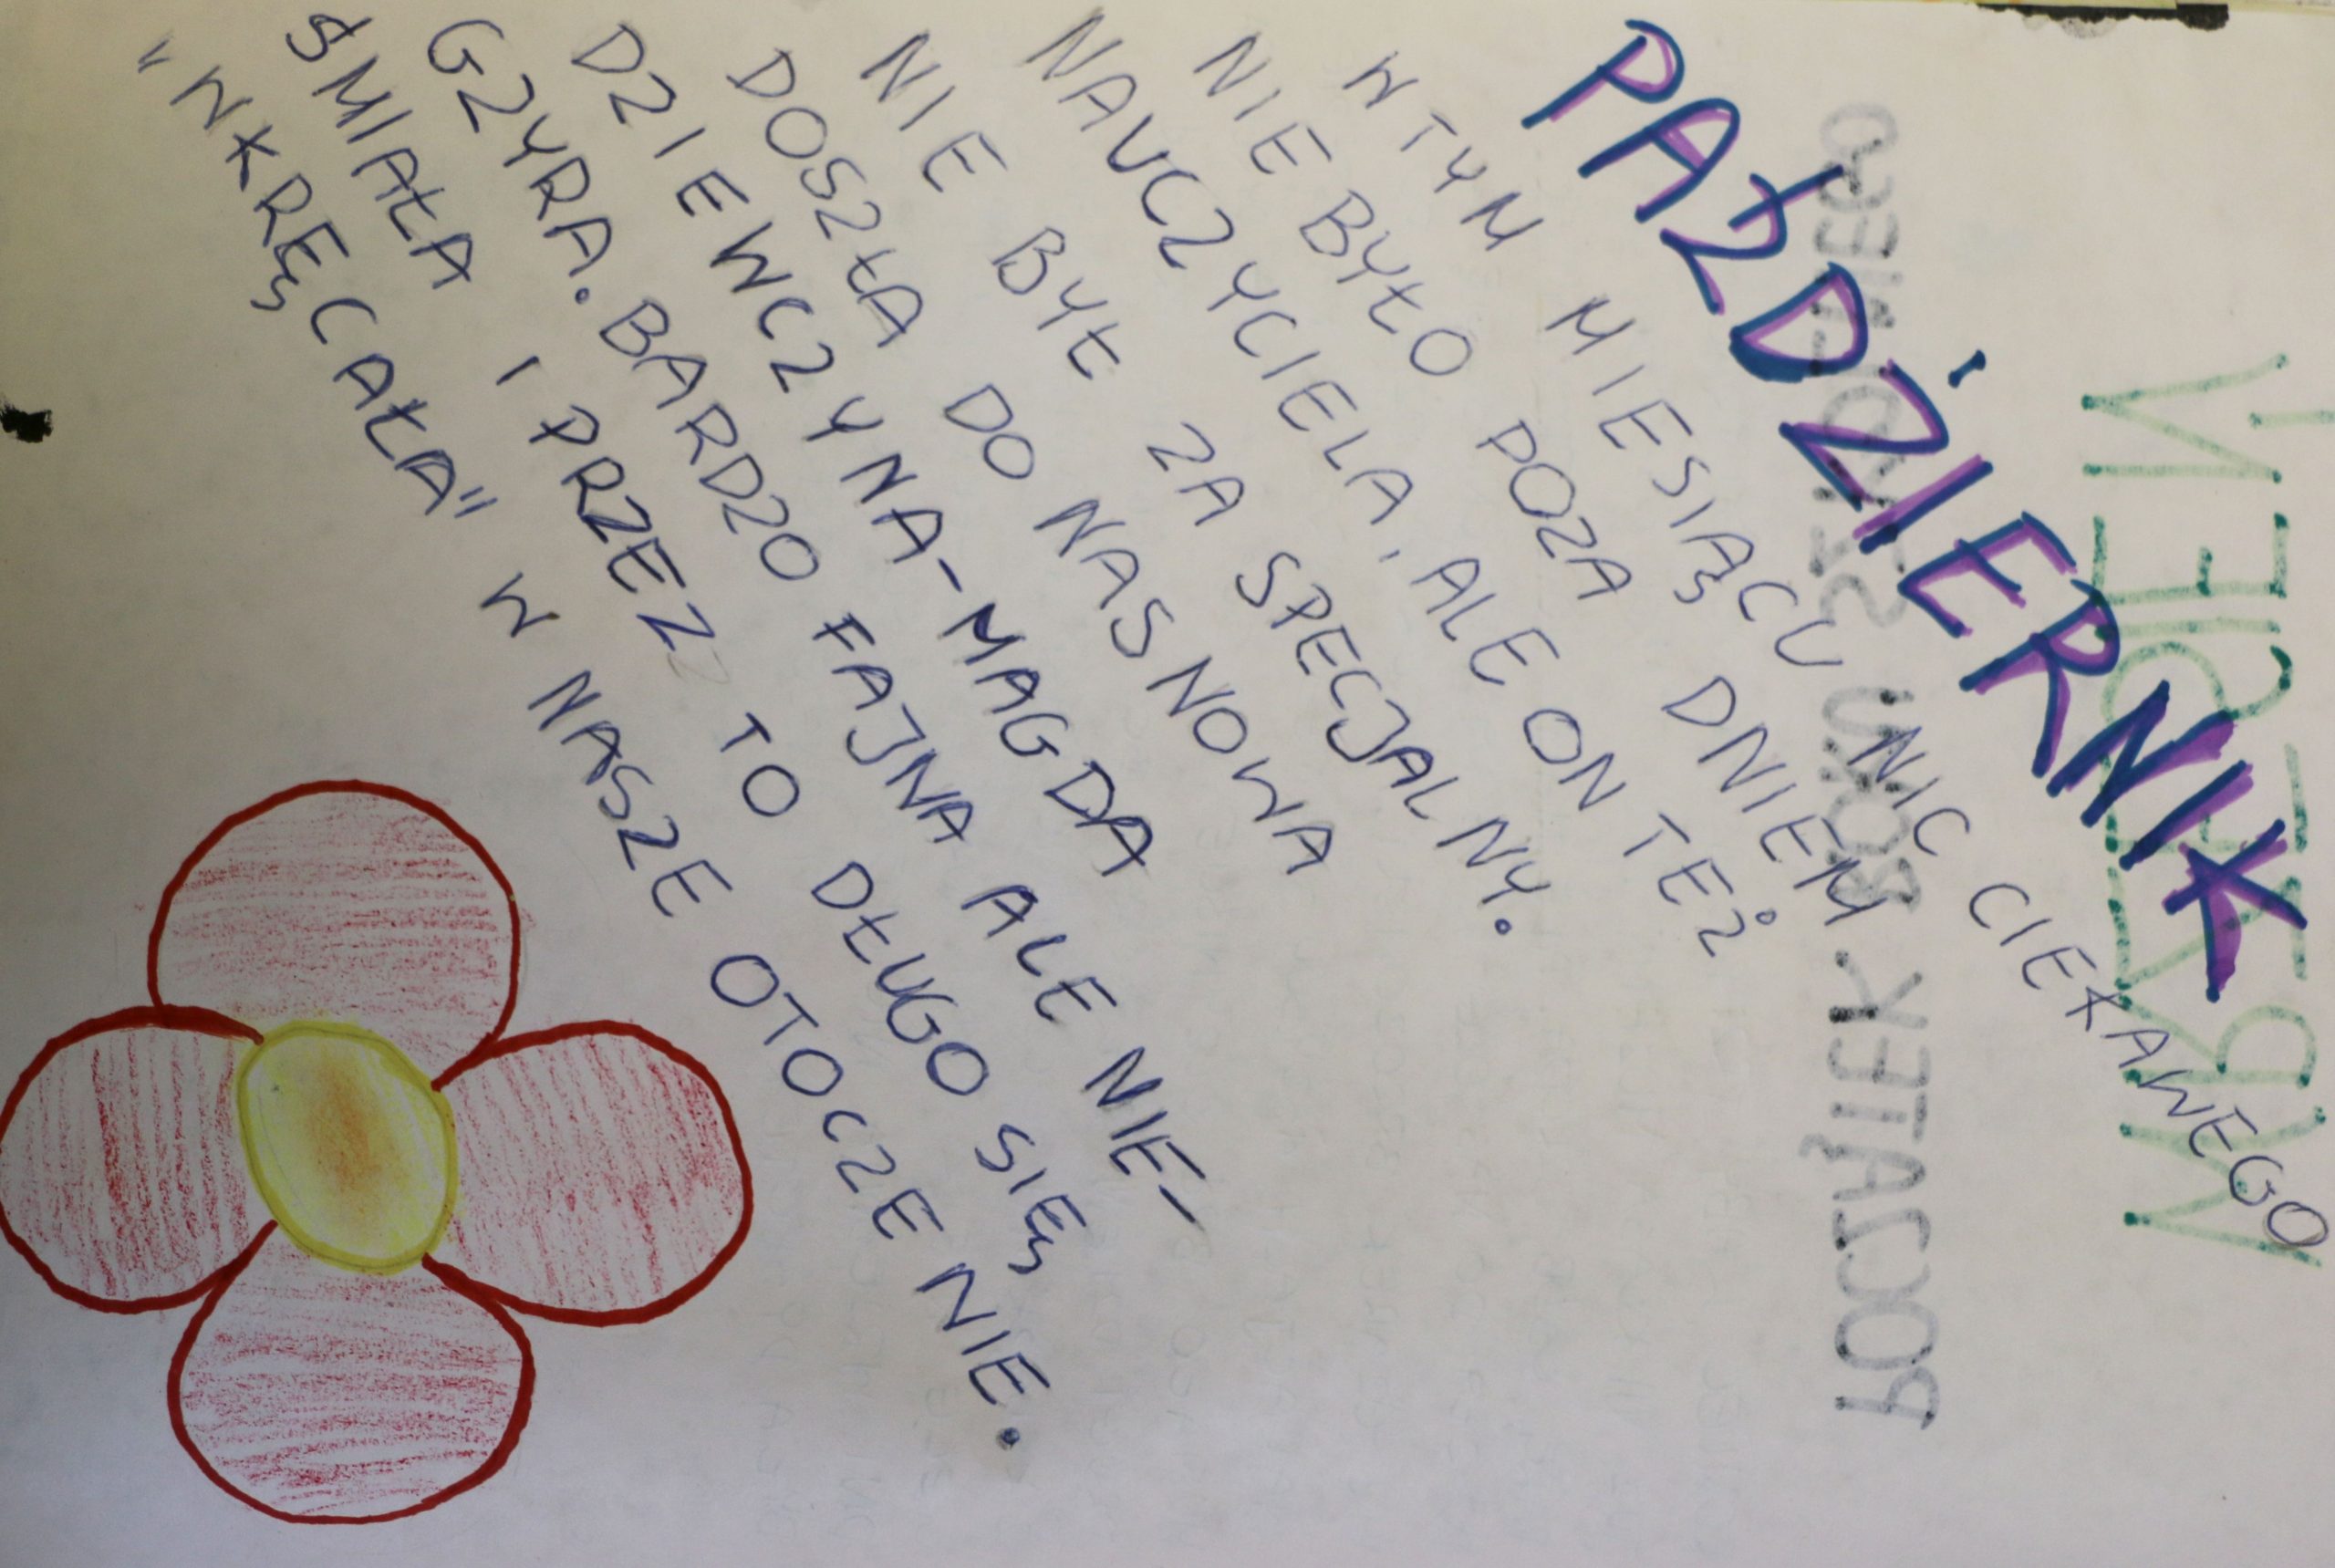 PAŹDŹIERNIK
W TYM MIESIĄCU NIC CIEKAWEGO
NIE BYŁO POZA DNIEM
NAUCZYCIELA, ALE ON TEŻ
NIE BYŁ ZA SPECJALNY.
DOSZŁA DO NAS NOWA
DZIEWCZYNA-MAGDA
GZYRA. BARDZO FAJNA ALE NIE-
ŚMIAŁA I PRZEZ TO DŁUGO SIĘ
"WKRĘCAŁA" W NASZE OTOCZENIE.
WRZESIEŃ
POCZĄTKI